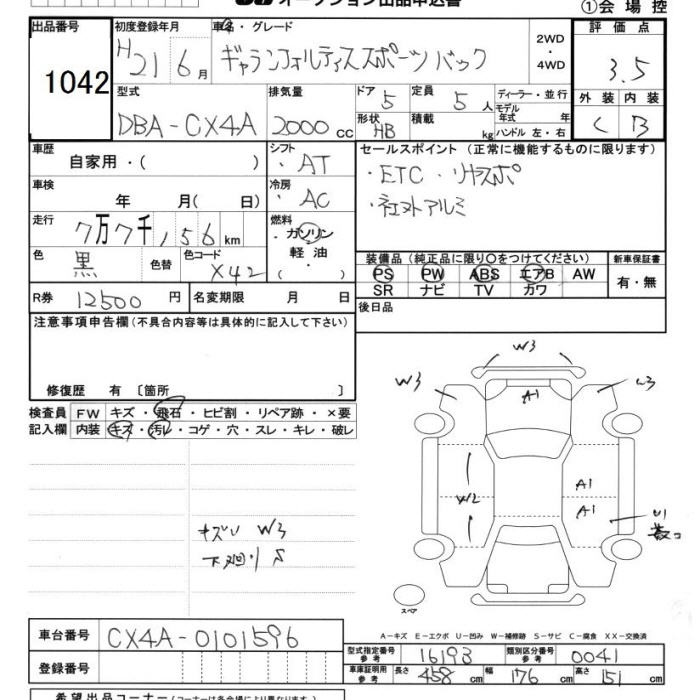 オークション出品申込書
①会場控
出品番号
1042
初度登録年月
H21 6月
車名・グレード
ギャランフォルティススポーツバック
2WD
・
4WD
評価点
3.5
外装 内装
C B
型式
DBA-CX4A
排気量
2000 cc
ドア 5
形状 HB
定員 5人
積載 kg
ディーラー・並行
モデル年式 年式
ハンドル 左・右
車歴
自家用・( )
シフト
・AT
車検
年 月( 日)
冷房
・AC
走行
7万7千156km
燃料
・ガソリン
軽油
・( )
色
黒
色替
色コード
X42
R券
12500円
名変期限 月 日
セールスポイント(正常に機能するものに限ります)
・ETC ・リヤスポ
・社外アルミ
装備品(純正品に限り○をつけてください)
PS PW ABS エアB AW
SR ナビ TV カワ
新車保証書
有・無
後日品
注意事項申告欄(不具合内容等は具体的に記入して下さい)
修復歴 有 〔箇所 〕
検査員記入欄
FW キズ・飛石・ヒビ割・リペア跡・×要
内装 キズ・汚レ・コゲ・穴・スレ・キレ・破レ
キズU W3
下廻りS
W3
W3
W3
A1
W2
A1
A1
U1
数コ
スペア
A－キズ E－エクボ U－凹み W－補修跡 S－サビ C－腐食 XX－交換済
車台番号
CX4A-0101596
登録番号
型式指定番号 参考
16193
類別区分番号 参考
0041
車庫証明用 参考
長さ 458cm
幅 176cm
高さ 151cm
希望出品コーナー(コーナーは各会場により異なります)